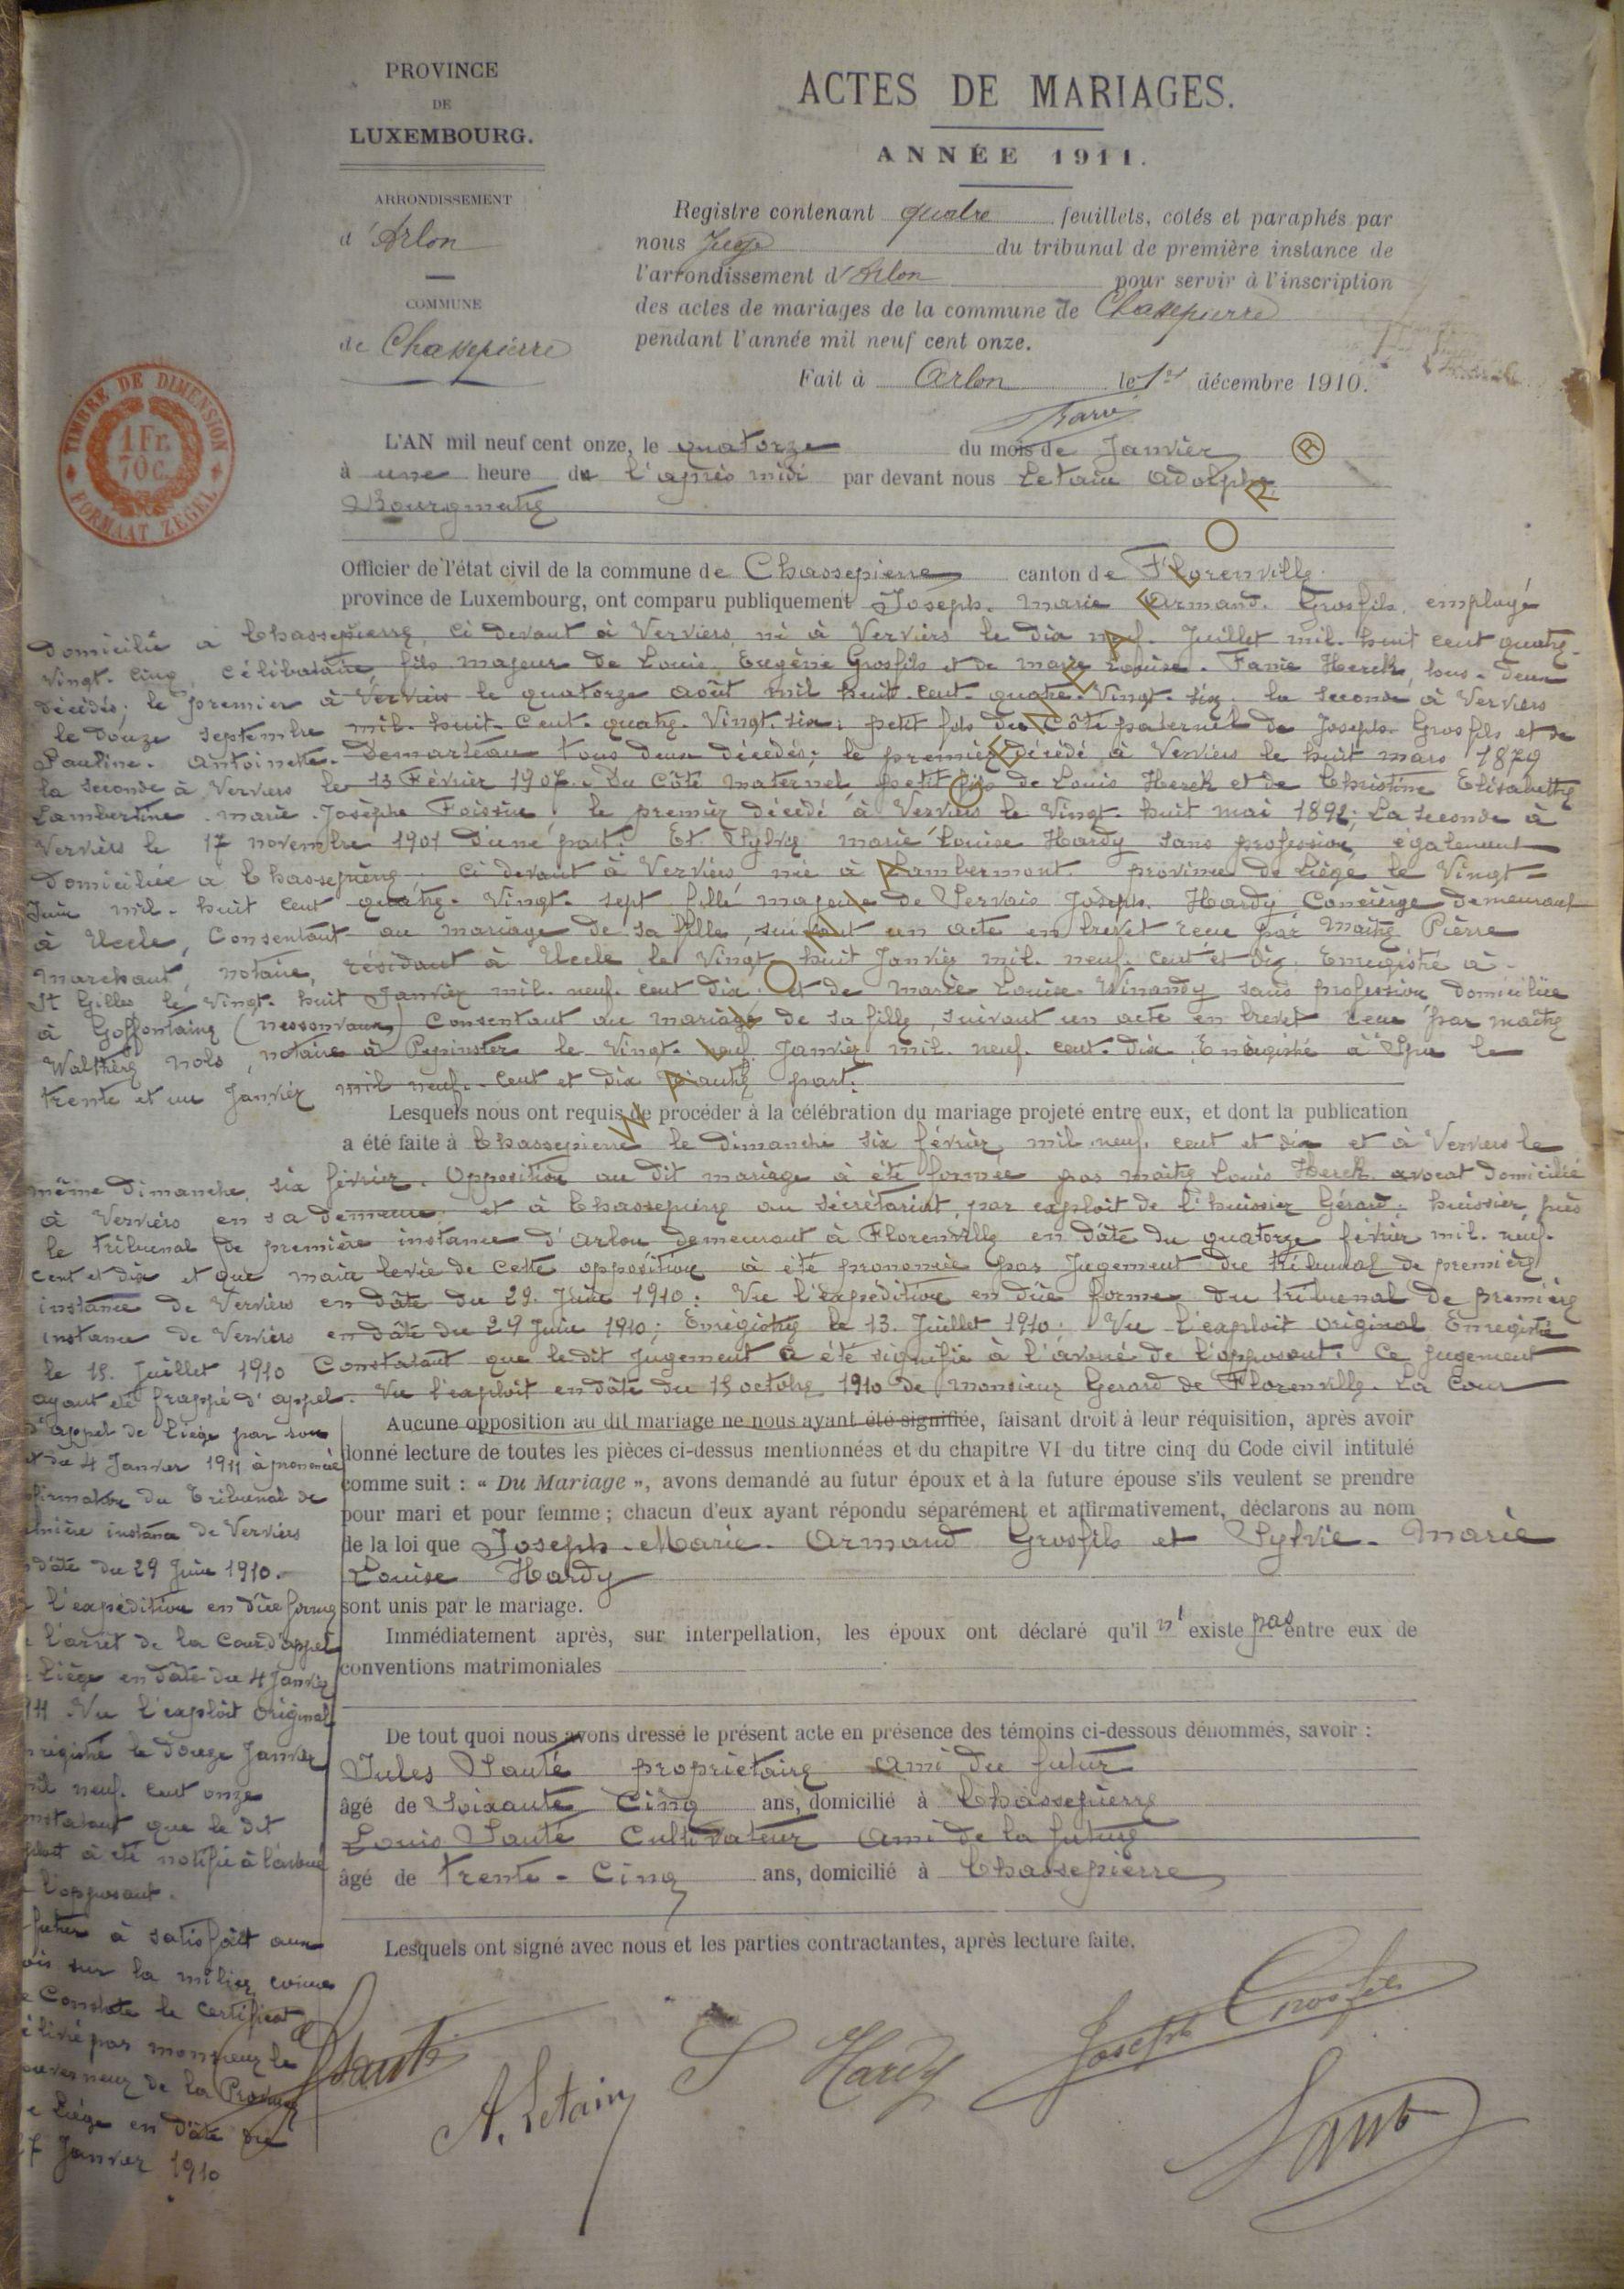 PROVINCE
DE
LUXEMBOURG.
ARRONDISSEMENT
d'Arlon
COMMUNE
de Chassepierre
TIMBRE DE DIMENSION
1 Fr.
70 c.
FORMAAT ZEGEL
ACTES DE MARIAGES.
ANNÉE 1911.
Registre contenant quatre feuillets, cotés et paraphés par
nous Juge du tribunal de première instance de
l'arrondissement d'Arlon pour servir à l'inscription
des actes de mariages de la commune de Chassepierre
pendant l'année mil neuf cent onze.
Fait à Arlon le 1er décembre 1910.
L'AN mil neuf cent onze, le quatorze du mois de Janvier
à une heure de l'après midi par devant nous Letain Adolphe
Bourgmestre
Officier de l'état civil de la commune de Chassepierre canton de Florenville
province de Luxembourg, ont comparu publiquement Joseph. Marie Armand. Grosfils, employé
domicilié à Chassepierre, ci devant à Verviers, né à Verviers le dix neuf. Juillet mil. huit cent quatre.
vingt. cinq, célibataire, fils majeur de Louis. Eugène Grosfils et de Marie Louise. Fanie Herck, tous. deux
décédés; le premier à Verviers le quatorze août mil huit. cent. quatre. vingt. six. la seconde à Verviers
le douze septembre mil. huit. cent. quatre. vingt. six; petit fils du Côté paternel de Joseph. Grosfils et de
Pauline. Antoinette. Demarteau tous deux décédés; le premier décédé à Verviers le huit mars 1879
la seconde à Verviers le 13 Février 1907. Du Côté maternel, petit fils de Louis Herck et de Christine Elisabeth
Lambertine. marie. Josèphe Foissin; le premier décédé à Verviers le Vingt. huit mai 1892; La seconde à
Verviers le 17 novembre 1901 d'une part: Et Sylvie marie Louise Hardy sans profession, également
domiciliée à Chassepierre; ci devant à Verviers née à Lambermont. province de Liège le Vingt=
Juin mil. huit cent quatre. Vingt. sept fille majeure de Servais Joseph. Hardy Concierge demeurant
à Uccle, Consentant au mariage de sa fille, suivant un acte en brevet reçu par Maître Pierre
Marchant, notaire, résidant à Uccle le Vingt. huit Janvier mil. neuf. cent et dix. Enregistré à
St Gilles le Vingt. huit Janvier mil. neuf. cent dix; et de Marie Louise. Winandy sans profession domiciliée
à Goffontaine (Nessonvaux) Consentant au mariage de sa fille, suivant un acte en brevet reçu par maître
Walthère Nols, notaire à Pepinster le Vingt. neuf. Janvier mil. neuf. cent. dix. Enregistré à Spa le
trente et un Janvier mil neuf. cent et dix d'autre part.
Lesquels nous ont requis de procéder à la célébration du mariage projeté entre eux, et dont la publication
a été faite à Chassepierre le dimanche six février mil neuf. cent et dix et à Verviers le
même dimanche, six février. Opposition au dit mariage à été formée par maître Louis Herck avocat domicilié
à Verviers en sa demeure; et à Chassepierre au sécrétariat, par exploit de l'huissier Gérard; huissier près
le tribunal de première instance d'Arlon demeurant à Florenville en dâte du quatorze février mil. neuf.
cent et dix et que main levée de cette opposition à été prononcée par Jugement du tribunal de première
instance de Verviers en dâte du 29. Juin 1910; Vu l'expédition en dûe forme du tribunal de première
instance de Verviers en dâte du 29 Juin 1910; Enregistré le 13. Juillet 1910; Vu l'exploit original Enregistré
le 15. Juillet 1910 Constatant que le dit Jugement à été signifié à l'avoué de l'opposant. Ce jugement
ayant été frappé d'appel. Vu l'exploit en dâte du 15 octobre 1910 de monsieur Gerard de Florenville. La Cour
d'appel de Liège par son
et du 4 Janvier 1911 à prononcé
firmation du Tribunal de
mière instance de Verviers
dâte du 29 Juin 1910.
l'expédition en dûe forme
l'arrêt de la Cour d'appel
Liège en dâte du 4 Janvier
11 Vu l'exploit original
régistré le douze Janvier
mil neuf. cent onze
nstatant que le dit
ploit à été notifié à l'avoué
l'opposant.
futur à satisfait aux
ois sur la milice comme
e Constate le certificat
élivré par monsieur le
ouverneur de la Province
e Liége en dâte du
7 Janvier 1910
Aucune opposition au dit mariage ne nous ayant été signifiée, faisant droit à leur réquisition, après avoir
donné lecture de toutes les pièces ci-dessus mentionnées et du chapitre VI du titre cinq du Code civil intitulé
comme suit : « Du Mariage », avons demandé au futur époux et à la future épouse s'ils veulent se prendre
pour mari et pour femme ; chacun d'eux ayant répondu séparément et affirmativement, déclarons au nom
de la loi que Joseph. Marie. Armand Grosfils et Sylvie. Marie
Louise Hardy
sont unis par le mariage.
Immédiatement après, sur interpellation, les époux ont déclaré qu'il n'existe pas entre eux de
conventions matrimoniales
De tout quoi nous avons dressé le présent acte en présence des témoins ci-dessous dénommés, savoir :
Jules Sauté propriétaire ami du futur
âgé de Soixante Cinq ans, domicilié à Chassepierre
Louis Sauté Cultivateur Ami de la future
âgé de trente-Cinq ans, domicilié à Chassepierre
Lesquels ont signé avec nous et les parties contractantes, après lecture faite.
A. Letain
S Hardy
Joseph Grosfils